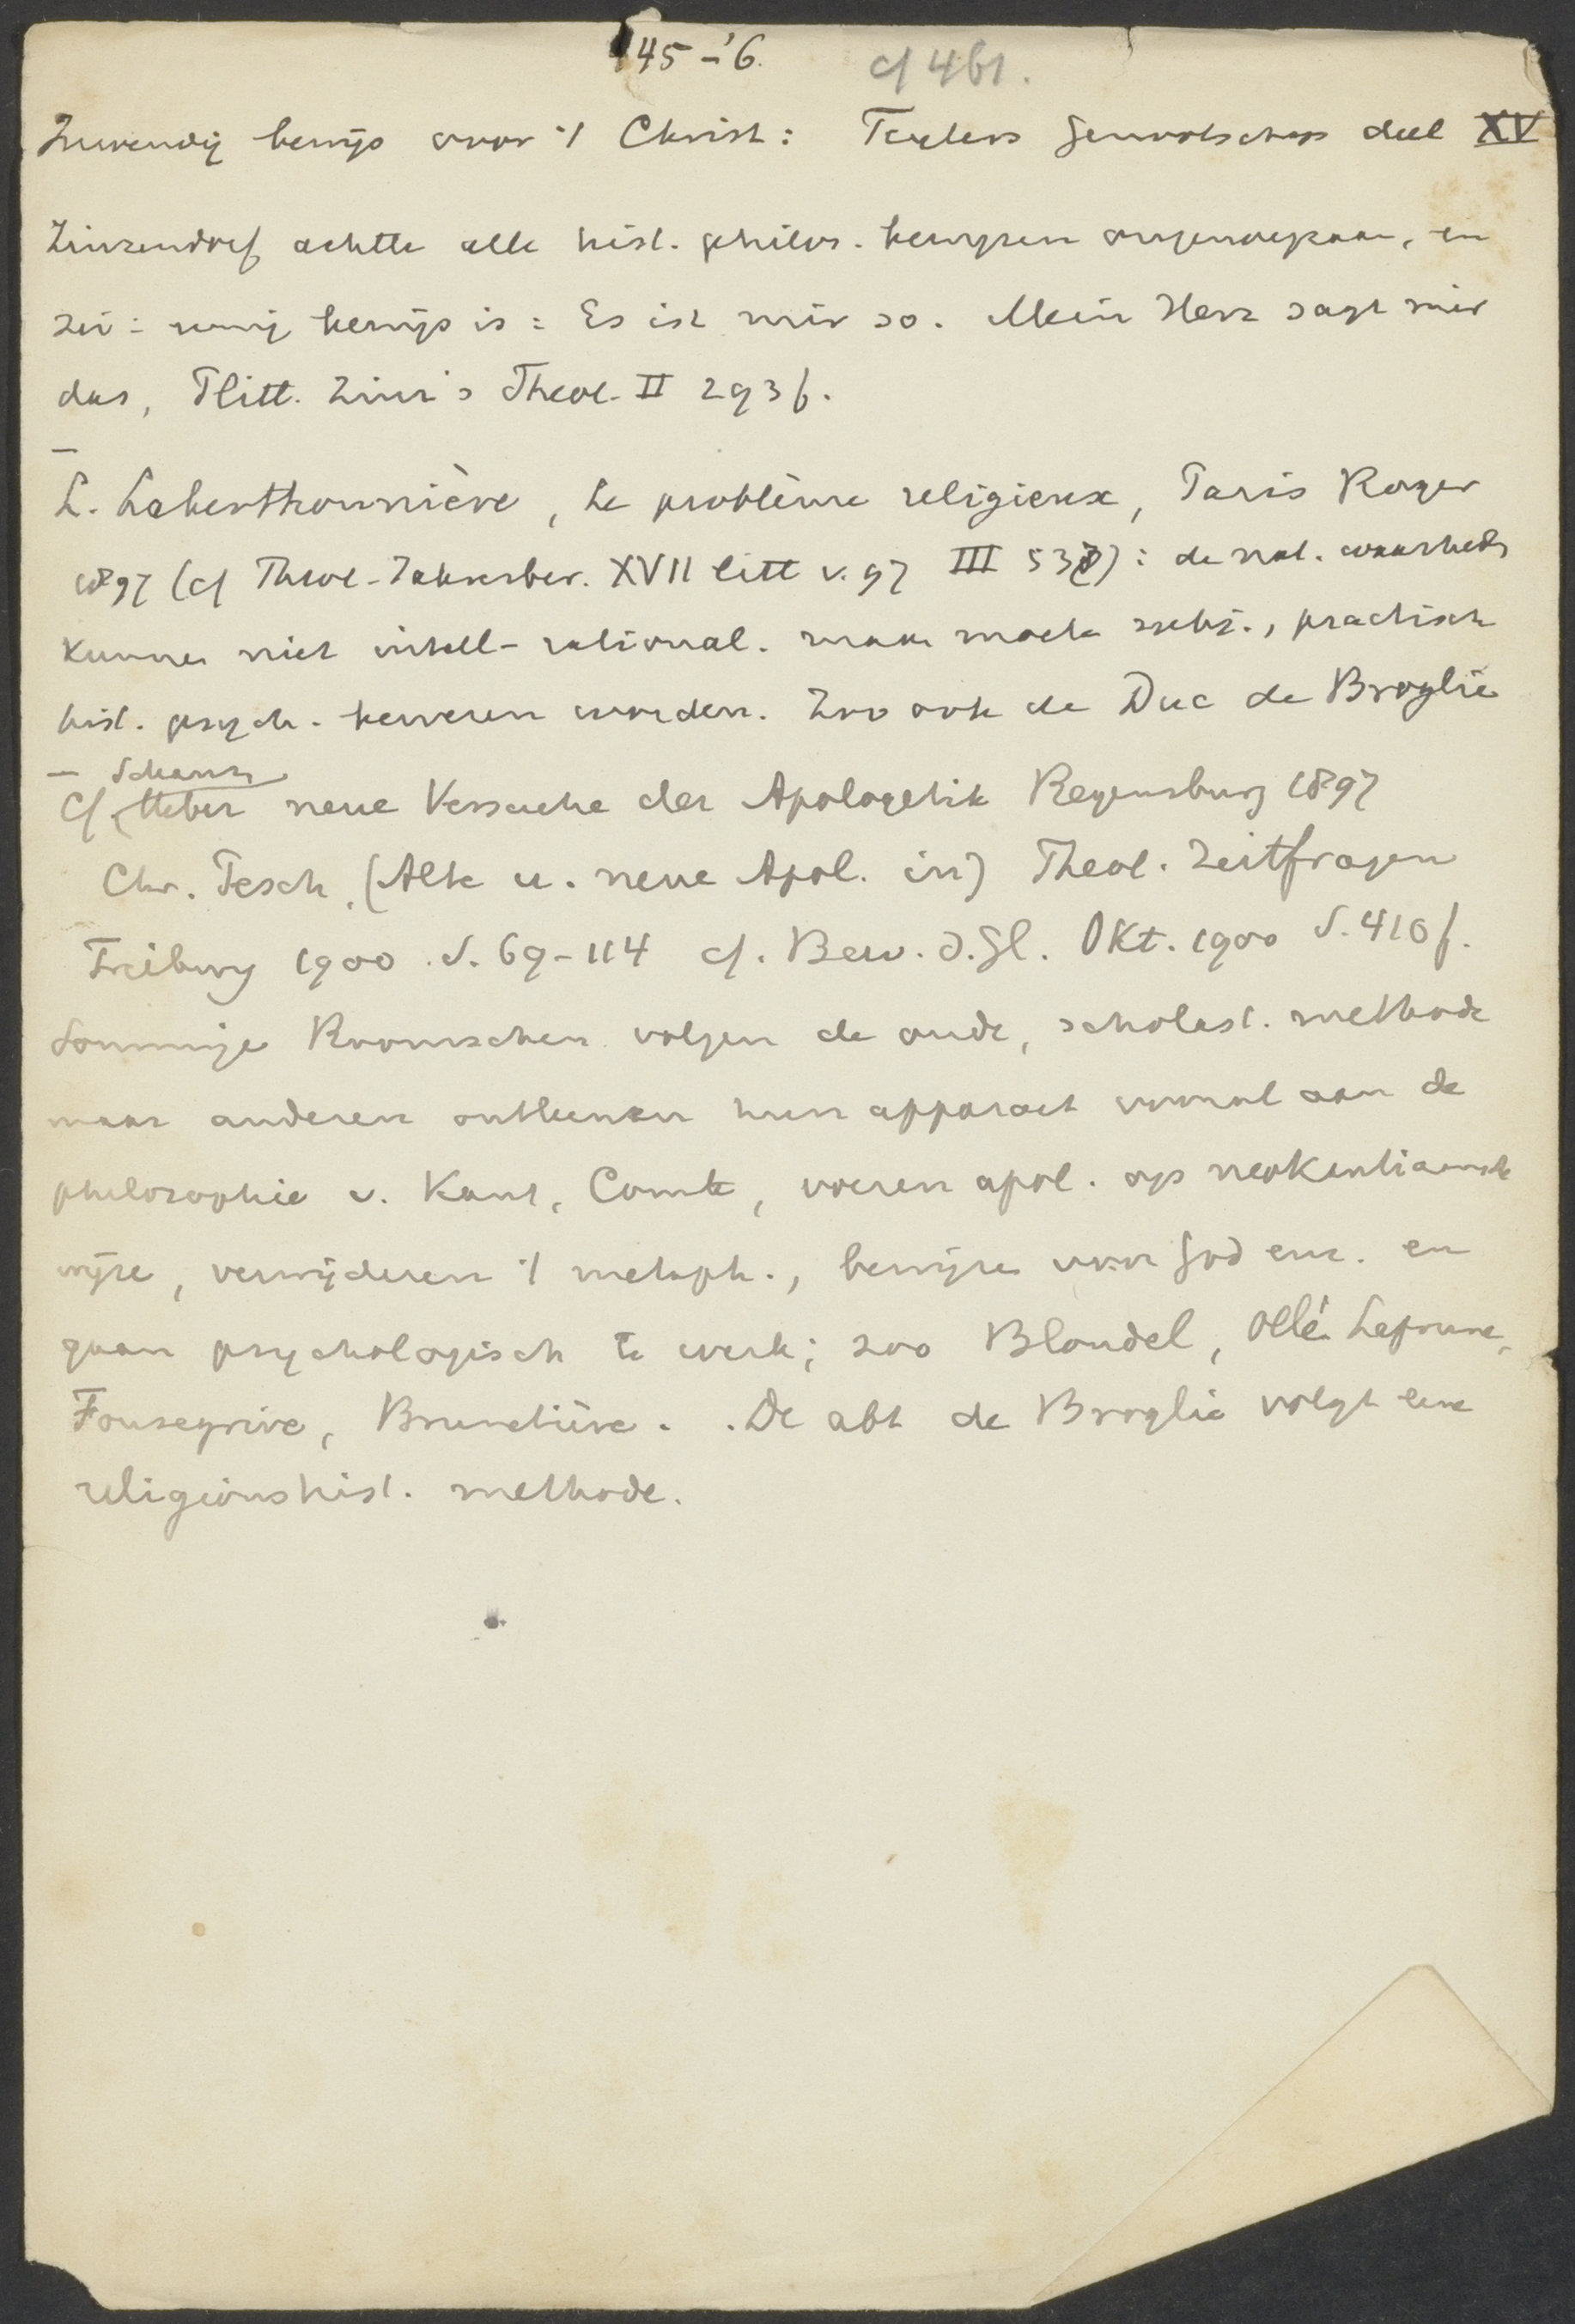 145-'6. cf 461.
Inwendig bewijs voor 't Christ: Teylers Genootschap deel XV
Zinzendorf achtte alle hist. philos. bewijzen ongenoegzaam, en
zei: mijn bewijs is: Es ist mir so. Mein Herz sagt mir
das, Plitt. Zinz's Theol. II 293 f.
—
L. Laberthonnière, Le problème religieux, Paris Roger
1897 (cf Theol. Jahresber. XVII litt v. 97 III 537): de rel. waarheden
kunnen niet intell-rational. maar moeten subj., practisch
hist. psych. bewezen worden. Zoo ook de Duc de Broglie
— Schanz
Cf Ueber neue Versuche der Apologetik Regensburg 1897
Chr. Pesch, (Alte u. neue Apol. in) Theol. Zeitfragen
Freiburg 1900. S. 69-114 cf. Bew. d. Gl. Okt. 1900 S. 410 f.
Sommige Roomschen volgen de oude, scholast. methode
maar anderen ontleenen hun apparaat vooral aan de
philosophie v. Kant, Comte, voeren apol. op neokantiaansche
wijze, verwijderen 't metaph., bewijzen voor God enz. en
gaan psychologisch te werk; zoo Blondel, Ollé Laprune,
Fonsegrive, Brunetière. De abt de Broglie volgt eene
religionshist. methode.